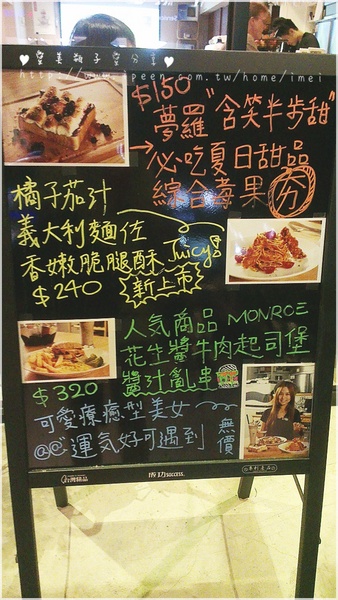 http://www.ipeen.com.tw/home/imei
$150
夢羅"含笑半步甜"
→必吃夏日甜品
綜合莓果(夯)
橘子茄汁
義大利麵佐
香嫩脆腿酥 Juicy
$240 新上市
人氣商品 MONROE
花生醬牛肉起司堡
醬汁亂串
$320
可愛療癒型美女
@@運氣好可遇到
無價
成功success